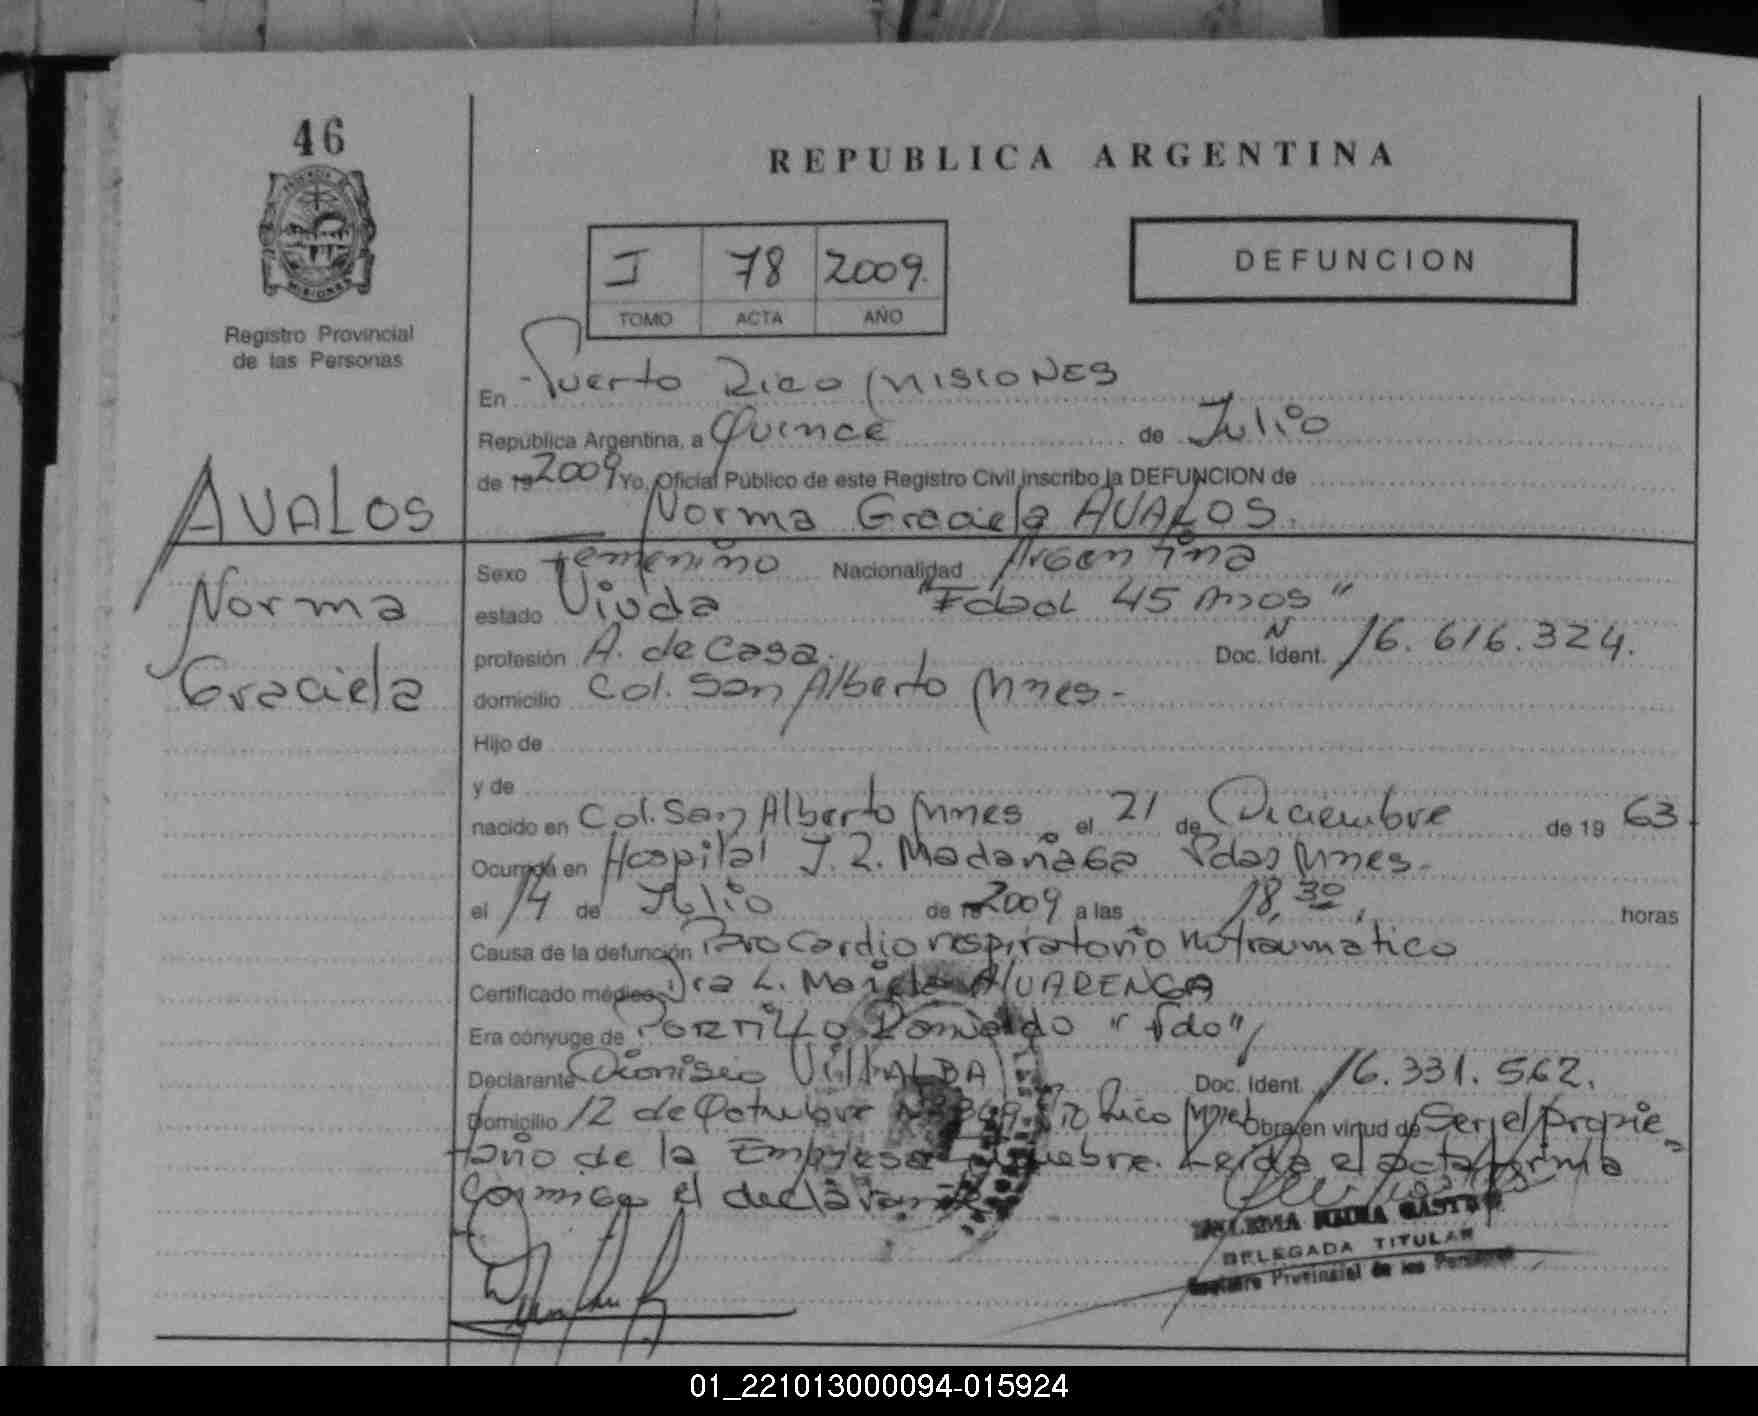 46
REPUBLICA ARGENTINA
I 78 2009.
TOMO ACTA AÑO
DEFUNCION
Registro Provincial
de las Personas
En Puerto Rico Misiones
República Argentina, a Quince de Julio
de 19 2009 Yo, Oficial Público de este Registro Civil inscribo la DEFUNCION de
Norma Graciela AVALOS.
AVALOS
Norma
Graciela
Sexo Femenino Nacionalidad Argentina
estado Viuda "Edad 45 Años"
profesión A. de casa. Doc. Ident. N 16.616.324.
domicilio Col. San Alberto Mnes.-
Hijo de
y de
nacido en Col. San Alberto Mnes el 21 de Diciembre de 19 63.
Ocurrida en Hospital Pdas Mnes.-
el 14 de Julio de 19 2009 a las 18,30, horas
Causa de la defunción Paro Cardio respiratorio no traumático
Certificado médico Dra L. ALVARENGA
Era cónyuge de PORTILLO Romualdo "Fdo",
Declarante Dionisio VILLALBA Doc. Ident. 16.331.562.
Domicilio 12 de Octubre Nº Pto Rico Mnes Obra en virtud de Ser el propie
tario de la Empresa Funebre. Leida el acta firma
conmigo el declarante
CASTRO
DELEGADA TITULAR
Registro Provincial de las Personas
01_221013000094-015924